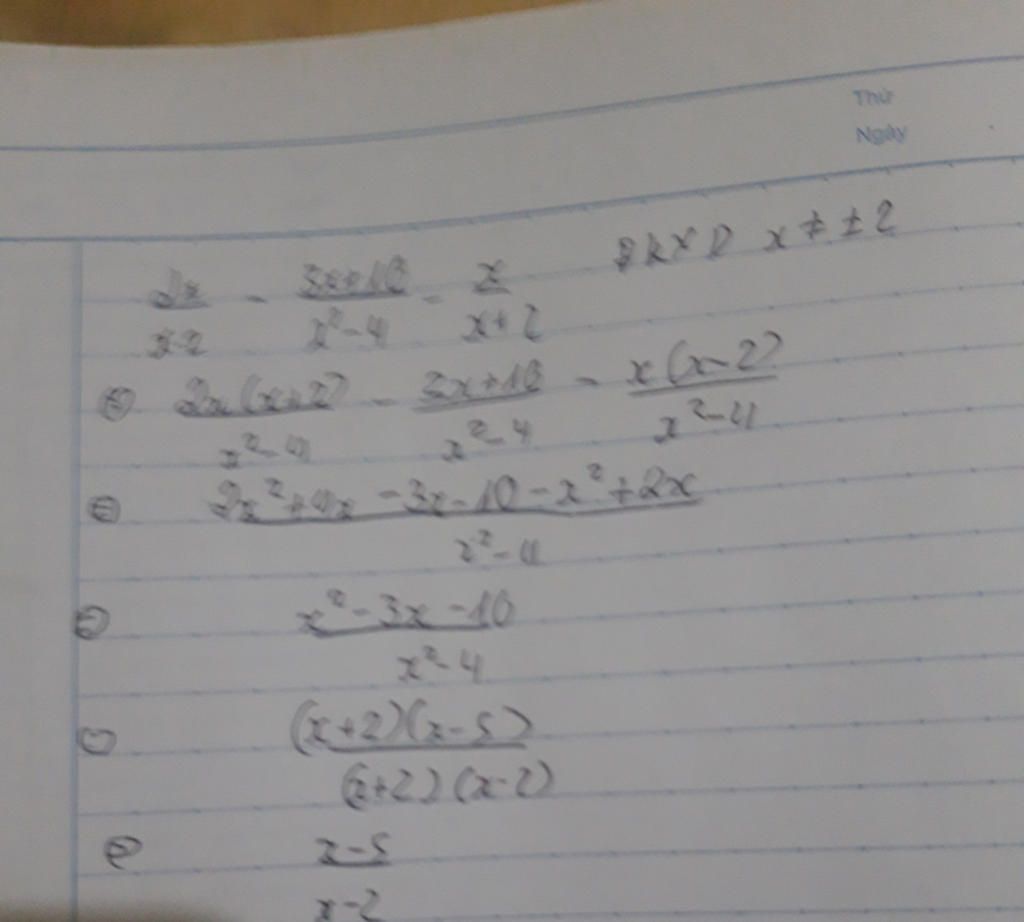 Thứ
Ngày
2x/x-2 - 3x+10/x²-4 - x/x+2 ĐKXD x ≠ ±2
⇔ 2x(x+2)/x²-4 - 3x+10/x²-4 - x(x-2)/x²-4
= 2x²+4x-3x-10-x²+2x/x²-4
= x²-3x-10/x²-4
= (x+2)(x-5)/(x+2)(x-2)
= x-5/x-2